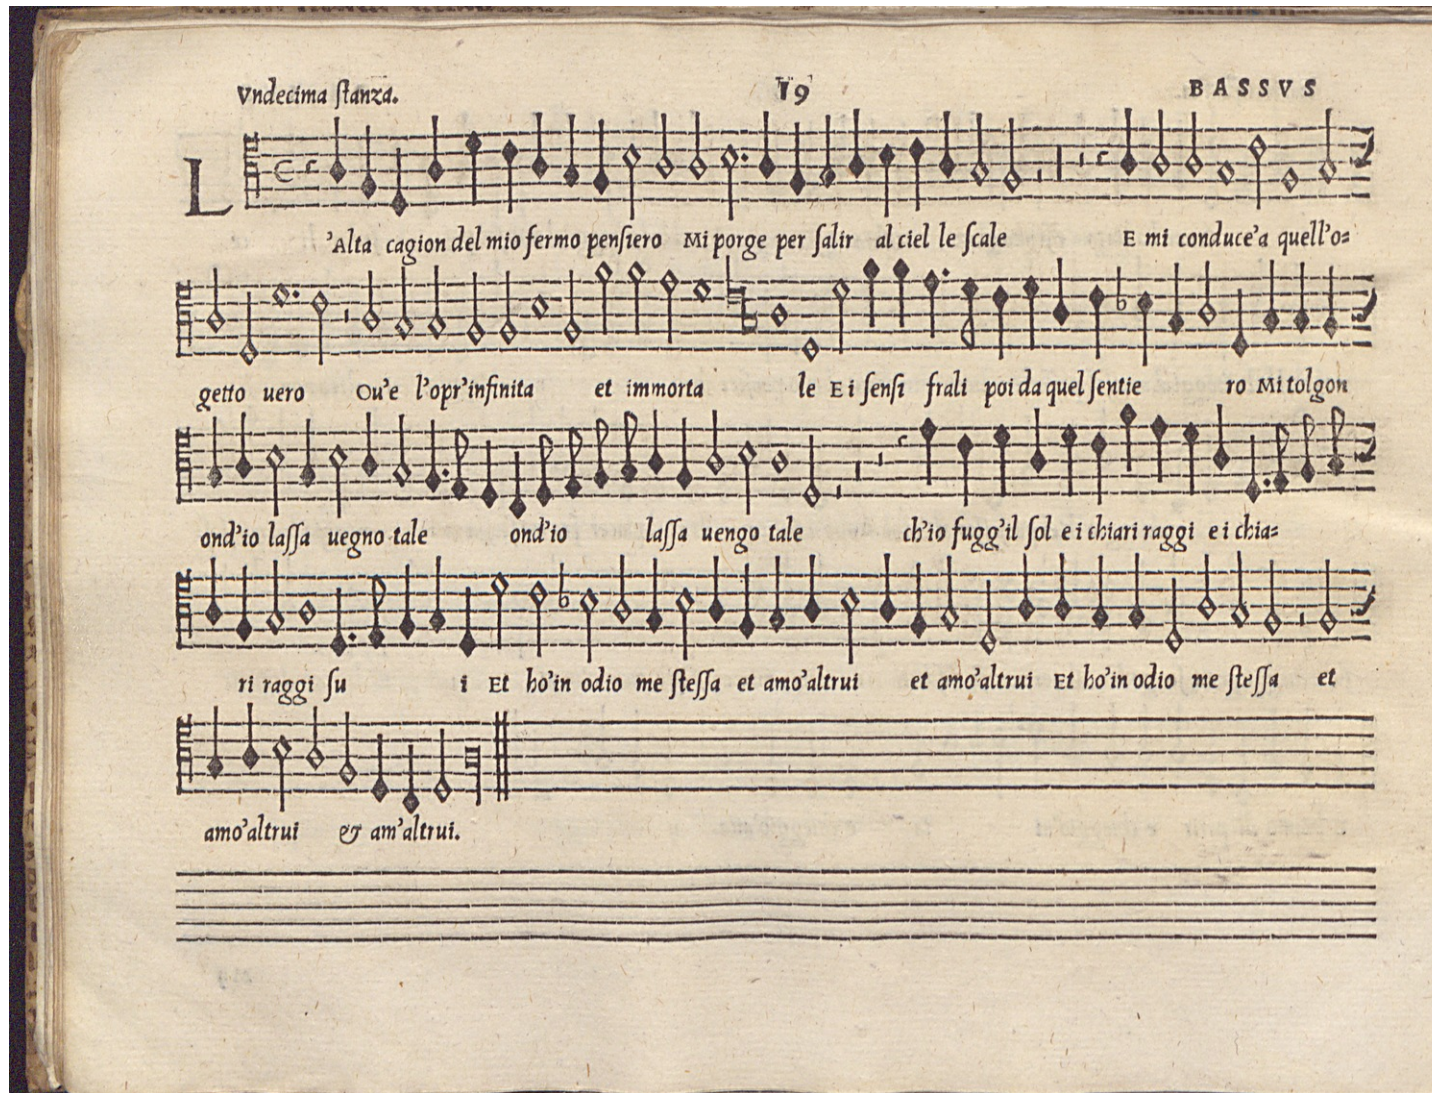 Vndecima ſtanza. 19 BASSVS
L
'Alta cagion del mio fermo penſiero Mi porge per ſalir al ciel le ſcale E mi conduce'a quell'o=
getto uero Ou'e l'opr'infinita et immorta le E i ſenſi frali poi da quel ſentie ro Mi tolgon
ond'io laſſa uegno tale ond'io laſſa uengo tale ch'io fugg'il ſol e i chiari raggi e i chia=
ri raggi ſu i Et ho'in odio me ſteſſa et amo'altrui et amo'altrui Et ho'in odio me ſteſſa et
amo'altrui & am'altrui.